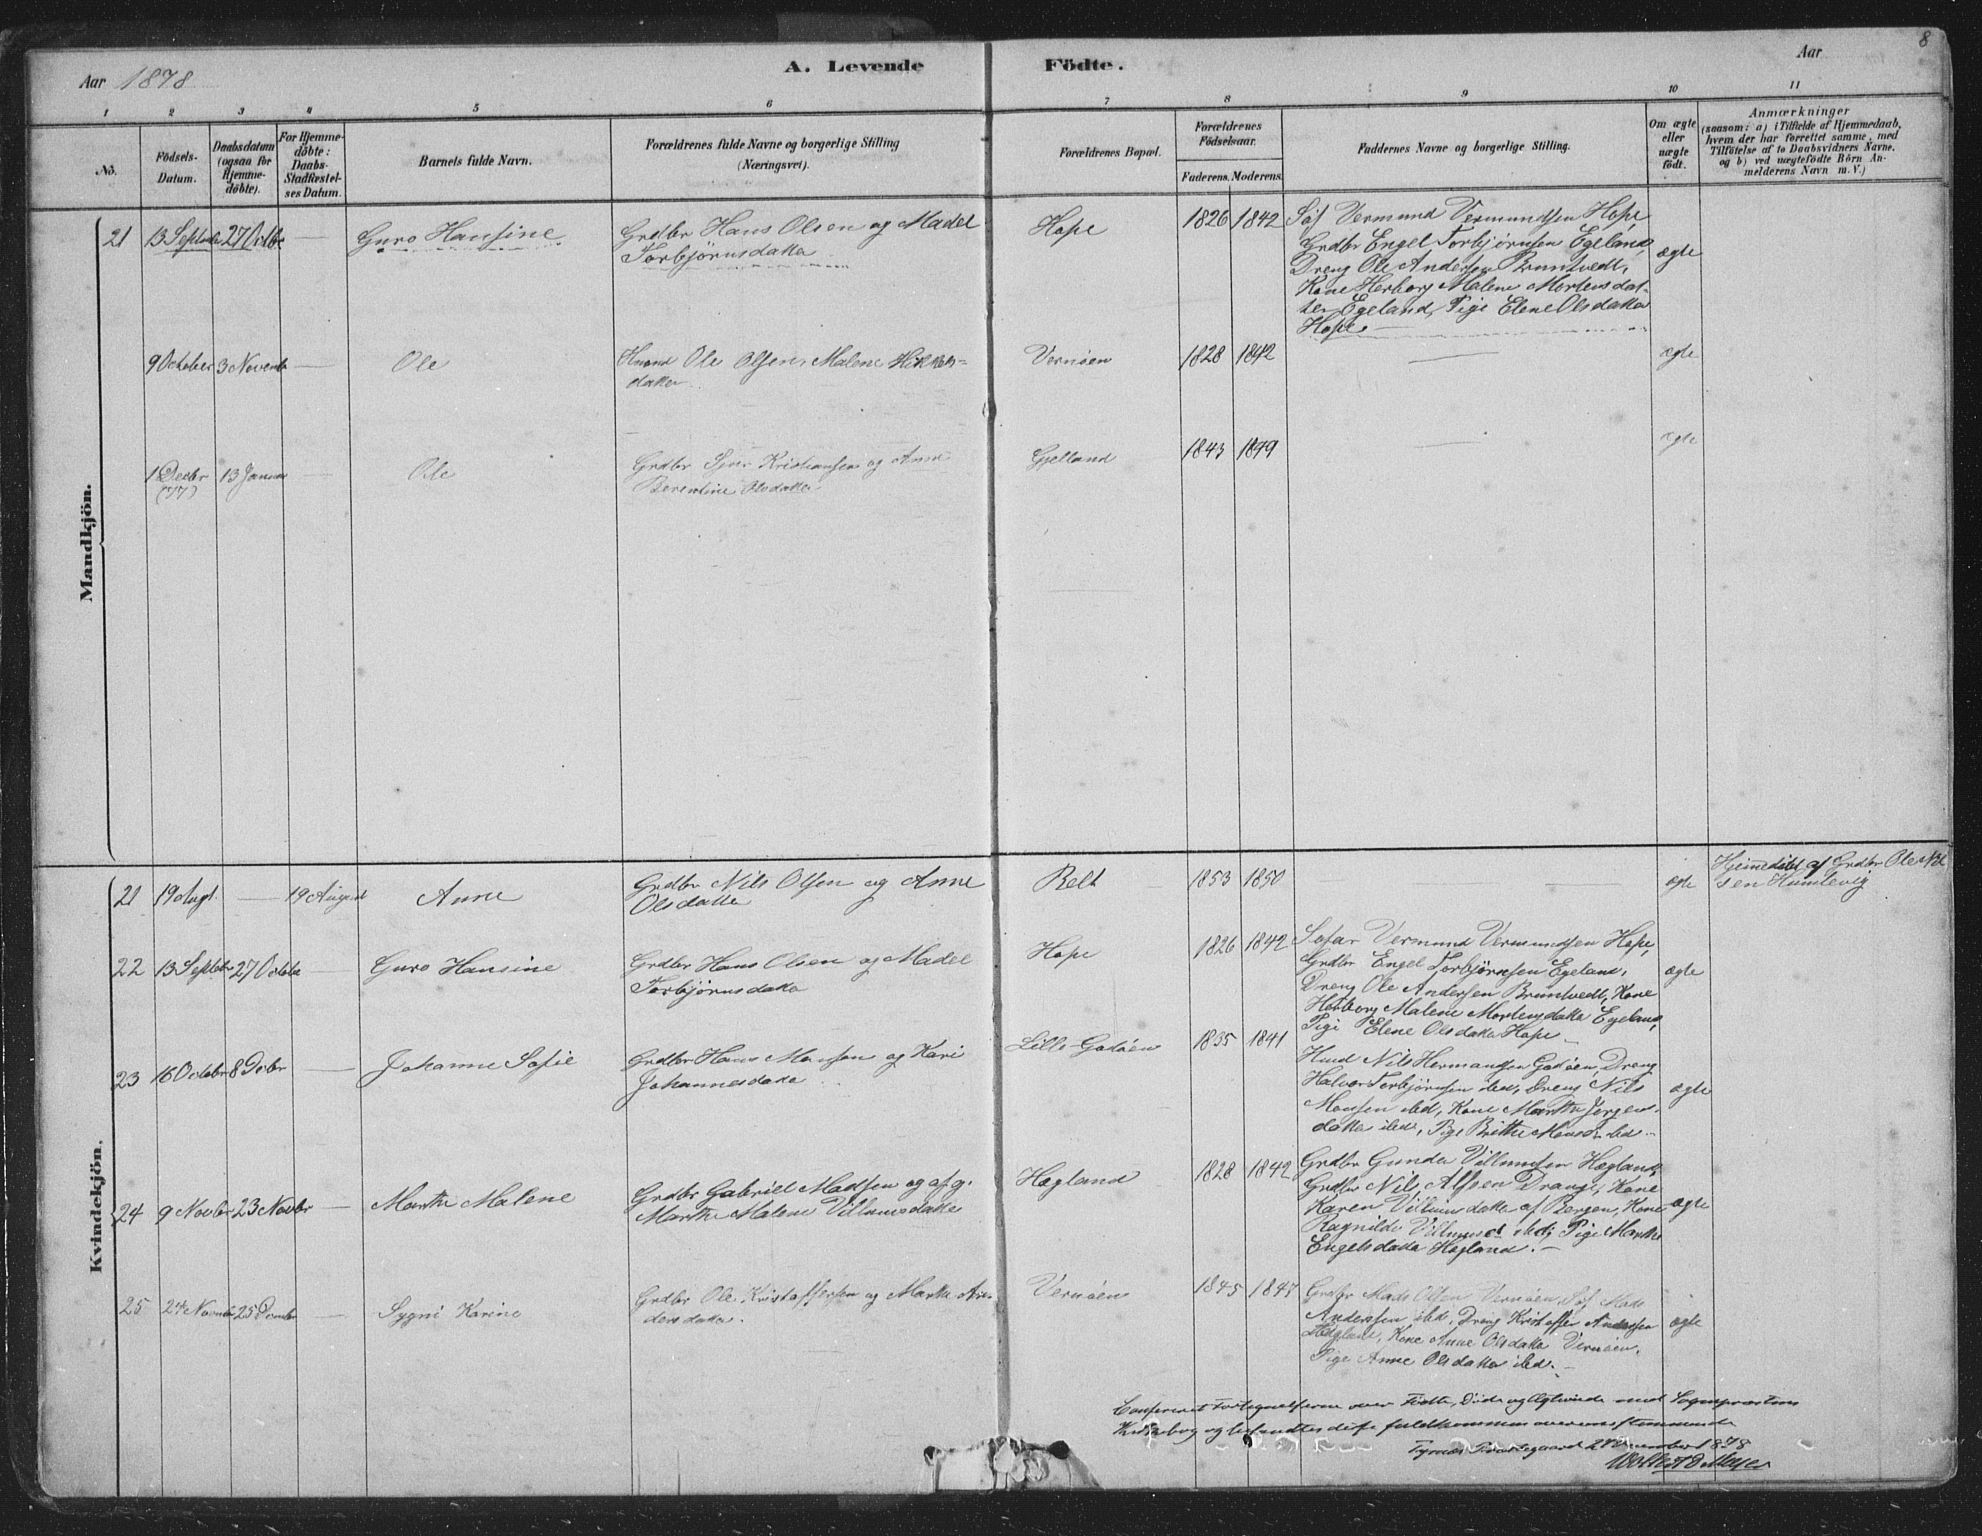 Aar 1878
A. Levende
Födte.
Aar
8
1 2 3 4 5 6 7 8 9 10 11
No.
Födsels-
Datum.
Daabsdatum
(ogsaa för
Hjemme-
döbte).
For Hjemme-
döbte:
Daabs-
Stadfestel-
ses Datum.
Barnets fulde Navn.
Forældrenes fulde Navne og borgerlige Stilling
(Næringsvei).
Forældrenes Bopæl.
Forældrenes
Födselsaar.
Faderens. Moderens.
Faddernes Navne og borgerlige Stilling.
Om ægte
eller
uægte
födt.
Anmærkninger
(saasom: a) i Tilfælde af Hjemmedaab,
hvem der har forrettet samme, med
Tilföielse af to Daabsvidners Navne.
og b) ved uægtefödte Börn An-
melderens Navn m. V.)
Mandkjön.
21 13 Septbr 27 Octbr — Guro Hansine
Grdbr Hans Olsen og Madel
Torbjørnsdatter
Hope 1826 1842
Søf Vermund Vermundsen Hope,
Grdbr Engel Torbjørnsen Egeland,
Dreng Ole Andersen Bruntvedt,
Kone Herborg Malene Mortensdat-
ter Egeland, Pige Elene Olsdatter
Hope —
ægte
9 October 3 Novemb — Ole
Huusmd Ole Olsen, Malene
datter
Vernøen 1828 1842 — ægte
1 Decbr
(77)
13 Januar — Ole
Grdbr Sjur Kristiansen og Anna
Berentine Olsdatter
Gjelland 1843 1849 — ægte
Kvindekjön.
21 19 Augt. — 19 August Anne
Grdbr Nils Olsen og Anne
Olsdatter
Belt 1853 1850 — ægte
Hjemmedøbt af Grdbr Ole
sen Humlevig
22 13 Septbr 27 Octobr — Guro Hansine
Grdbr Hans Olsen og Madel
Torbjørnsdatter
Hope 1826 1842
Søfar Vermund Vermundsen Hope,
Grdbr Engel Torbjørnsen Egeland,
Dreng Ole Andersen Bruntvedt, Kone
Herborg Malene Mortensdatter Egeland,
Pige Elene Olsdatter Hope —
ægte
23 16 Octobr 8 Decbr — Johanne Sofie
Grdbr Hans Monsen og Kari
Johannesdatter
Lille Godøen 1835 1841
Husmd Nils Hermansen Godøen, Dreng
Halvor Torbjørnsen ibid, Dreng Nils
Monsen ibid, Kone Marthe Jørgens-
datter ibid, Pige Brithe Monsd. ibid —
ægte
24 9 Novbr 23 Novbr — Marthe Malene
Grdbr Gabriel Madsen og afg.
Marthe Malene Villumsdatter
Høgland 1828 1842
Grdbr Gunder Villumsen Høgland,
Grdbr Nils Alfsen Drange, Kone
Karen Villumsdatter af Bergen, Kone
Ragnilde Villumsd ibid, Pige Marthe
Engelsdatter Høgland. —
ægte
25 24 Novmbr 25 Decmbr — Sygni Karine
Grdbr Ole Kristoffersen og Marthe An-
dersdatter.
Vernøen 1845 1847
Grdbr Mads Olsen Vernøen, Søf Mads
Anderssen ibid, Dreng Kristoffer Andersen
Høgland, Kone Anne Olsdatter Vernøen,
Pige Anne Olsdatter ibid. —
ægte
Confereret Fortegnelserne over Fødte, Døde og Ægteviede med Sognepræstens
Kirkebog og befandtes disse fuldkommen overensstemmende
Tysnæs Præstegaard 2 December 1878